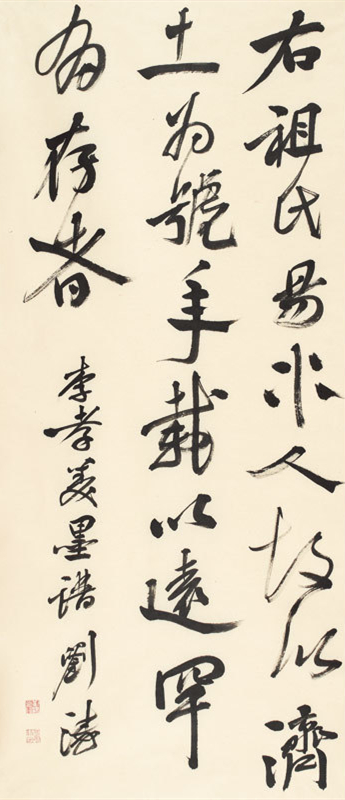 右祖氏易水人故以濟
土為號年載以遠罕
有存者
李孝美墨譜 劉濤